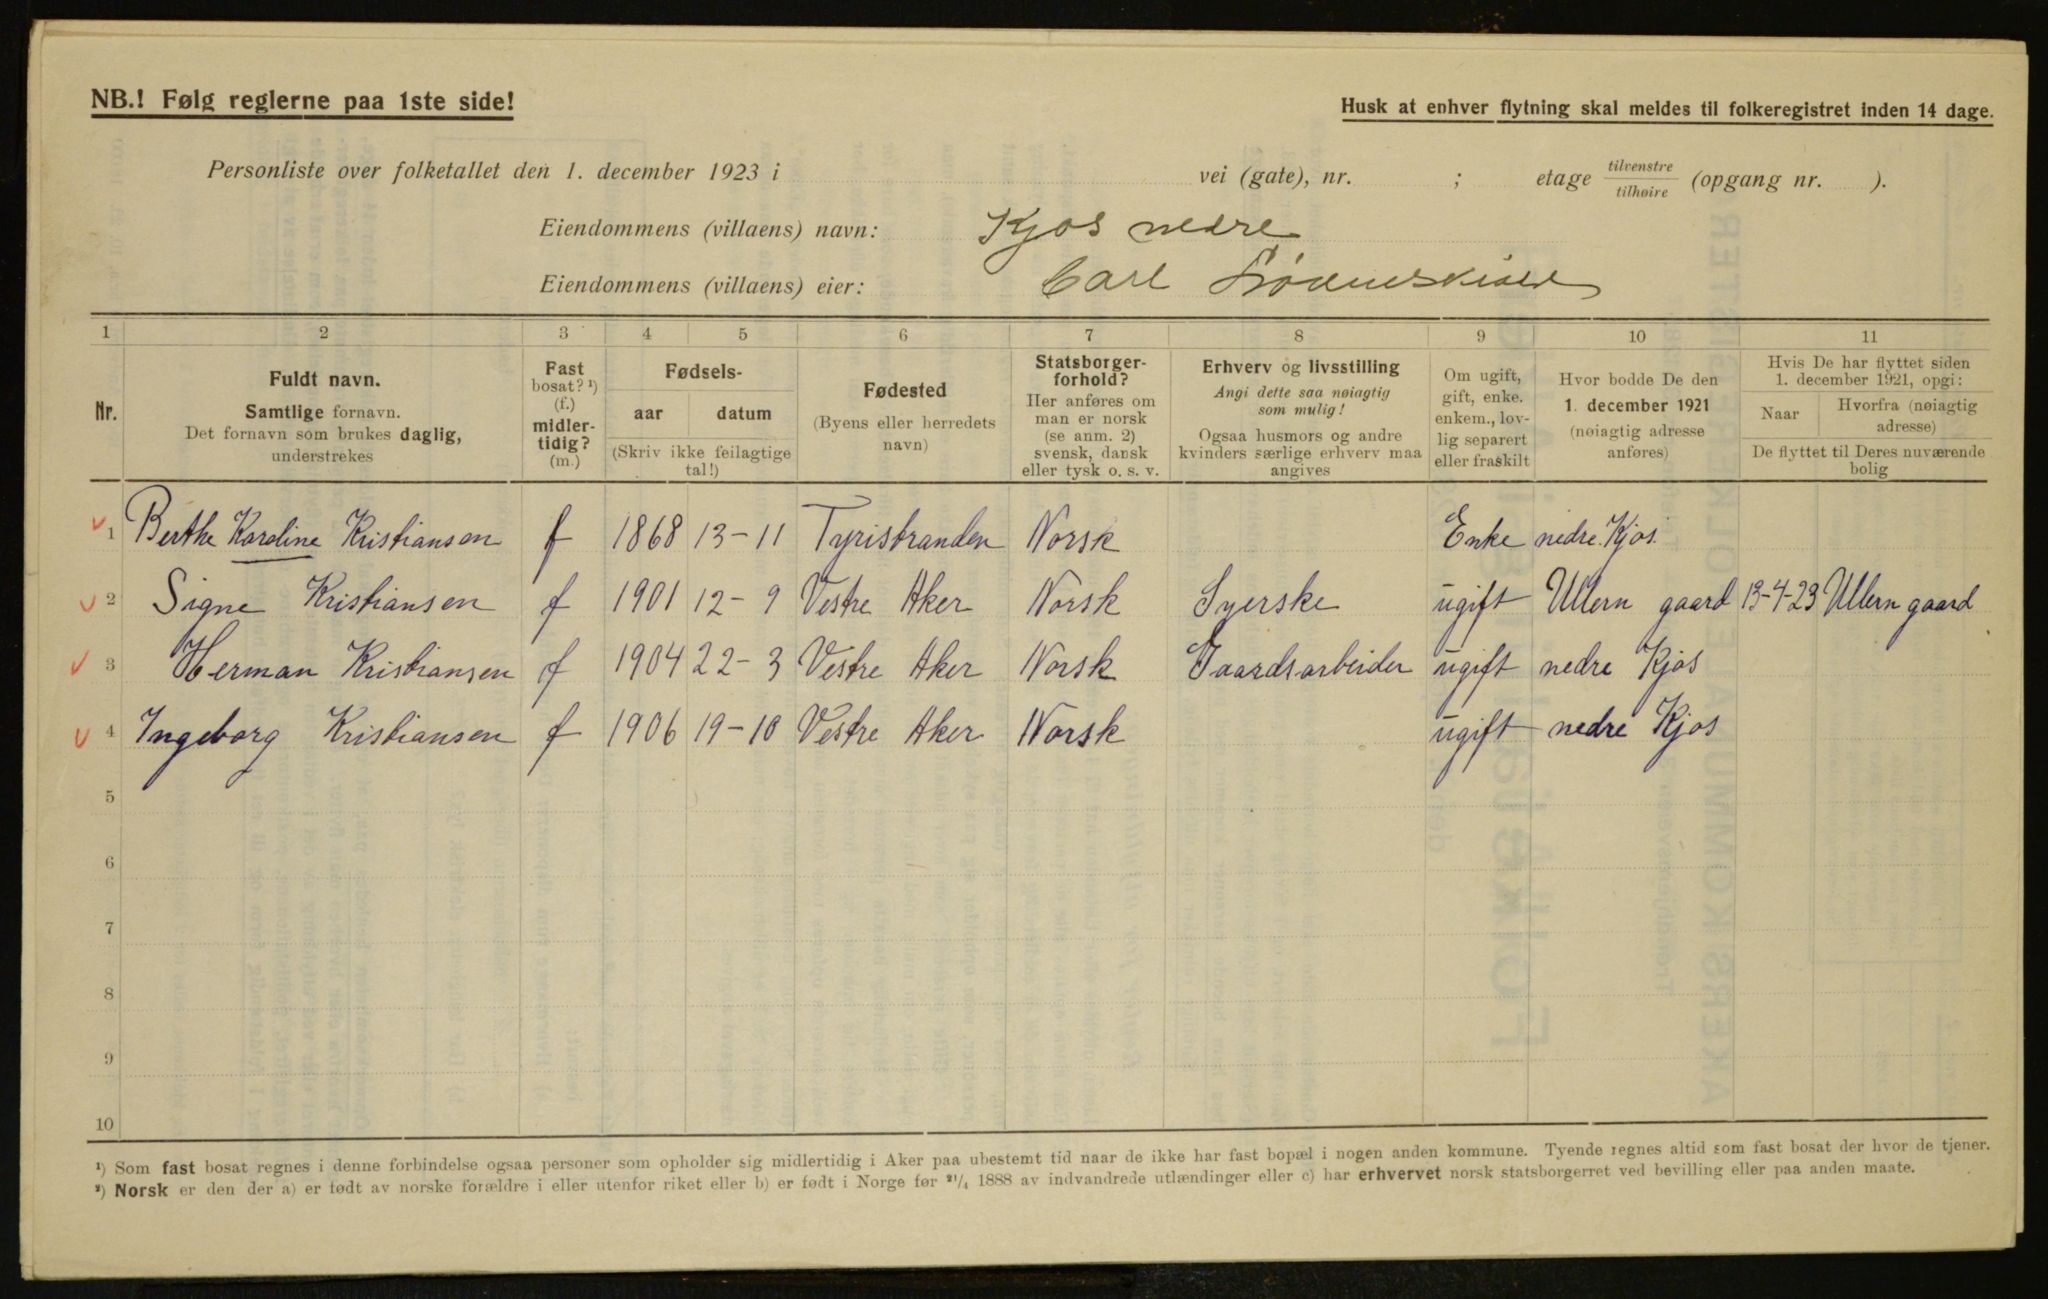 NB.! Følg reglerne paa 1ste side!
Husk at enhver flytning skal meldes til folkeregistret inden 14 dage.
Personliste over folketallet den 1. december 1923 i vei (gate), nr. ; etage tilvenstre tilhøire (opgang nr. ).
Eiendommens (villaens) navn: Kjos nedre
Eiendommens (villaens) eier: Carl
1 2 3 4 5 6 7 8 9 10 11
Nr.
Fuldt navn.
Samtlige fornavn.
Det fornavn som brukes daglig,
understrekes
Fast
bosat? ¹)
(f.)
midler-
tidig?
(m.)
Fødsels-
aar datum
(Skriv ikke feilagtige
tal!)
Fødested
(Byens eller herredets
navn)
Statsborger-
forhold?
Her anføres om
man er norsk
(se anm. 2)
svensk, dansk
eller tysk o. s. v.
Erhverv og livsstilling
Angi dette saa nøiagtig
som mulig!
Ogsaa husmors og andre
kvinders særlige erhverv maa
angives
Om ugift,
gift, enke.
enkem., lov-
lig separert
eller fraskilt
Hvor bodde De den
1. december 1921
(nøiagtig adresse
anføres)
Hvis De har flyttet siden
1. december 1921, opgi:
Naar Hvorfra (nøiagtig
adresse)
De flyttet til Deres nuværende
bolig
1 Berthe Karoline Kristiansen f 1868 13-11 Tyristranden Norsk Enke nedre Kjos.
2 Signe Kristiansen f 1901 12-9 Vestre Aker Norsk Syerske ugift Ullern gaard 13-4-23 Ullern gaard
3 Herman Kristiansen f 1904 22-3 Vestre Aker Norsk Gaardsarbeider ugift nedre Kjos
4 Ingeborg Kristiansen f 1906 19-10 Vestre Aker Norsk ugift nedre Kjos
5
6
7
8
9
10
¹) Som fast bosat regnes i denne forbindelse ogsaa personer som opholder sig midlertidig i Aker paa ubestemt tid naar de ikke har fast bopæl i nogen anden kommune. Tyende regnes altid som fast bosat der hvor de tjener.
²) Norsk er den der a) er født av norske forældre i eller utenfor riket eller b) er født i Norge før ²¹/₄ 1888 av indvandrede utlændinger eller c) har erhvervet norsk statsborgerret ved bevilling eller paa anden maate.